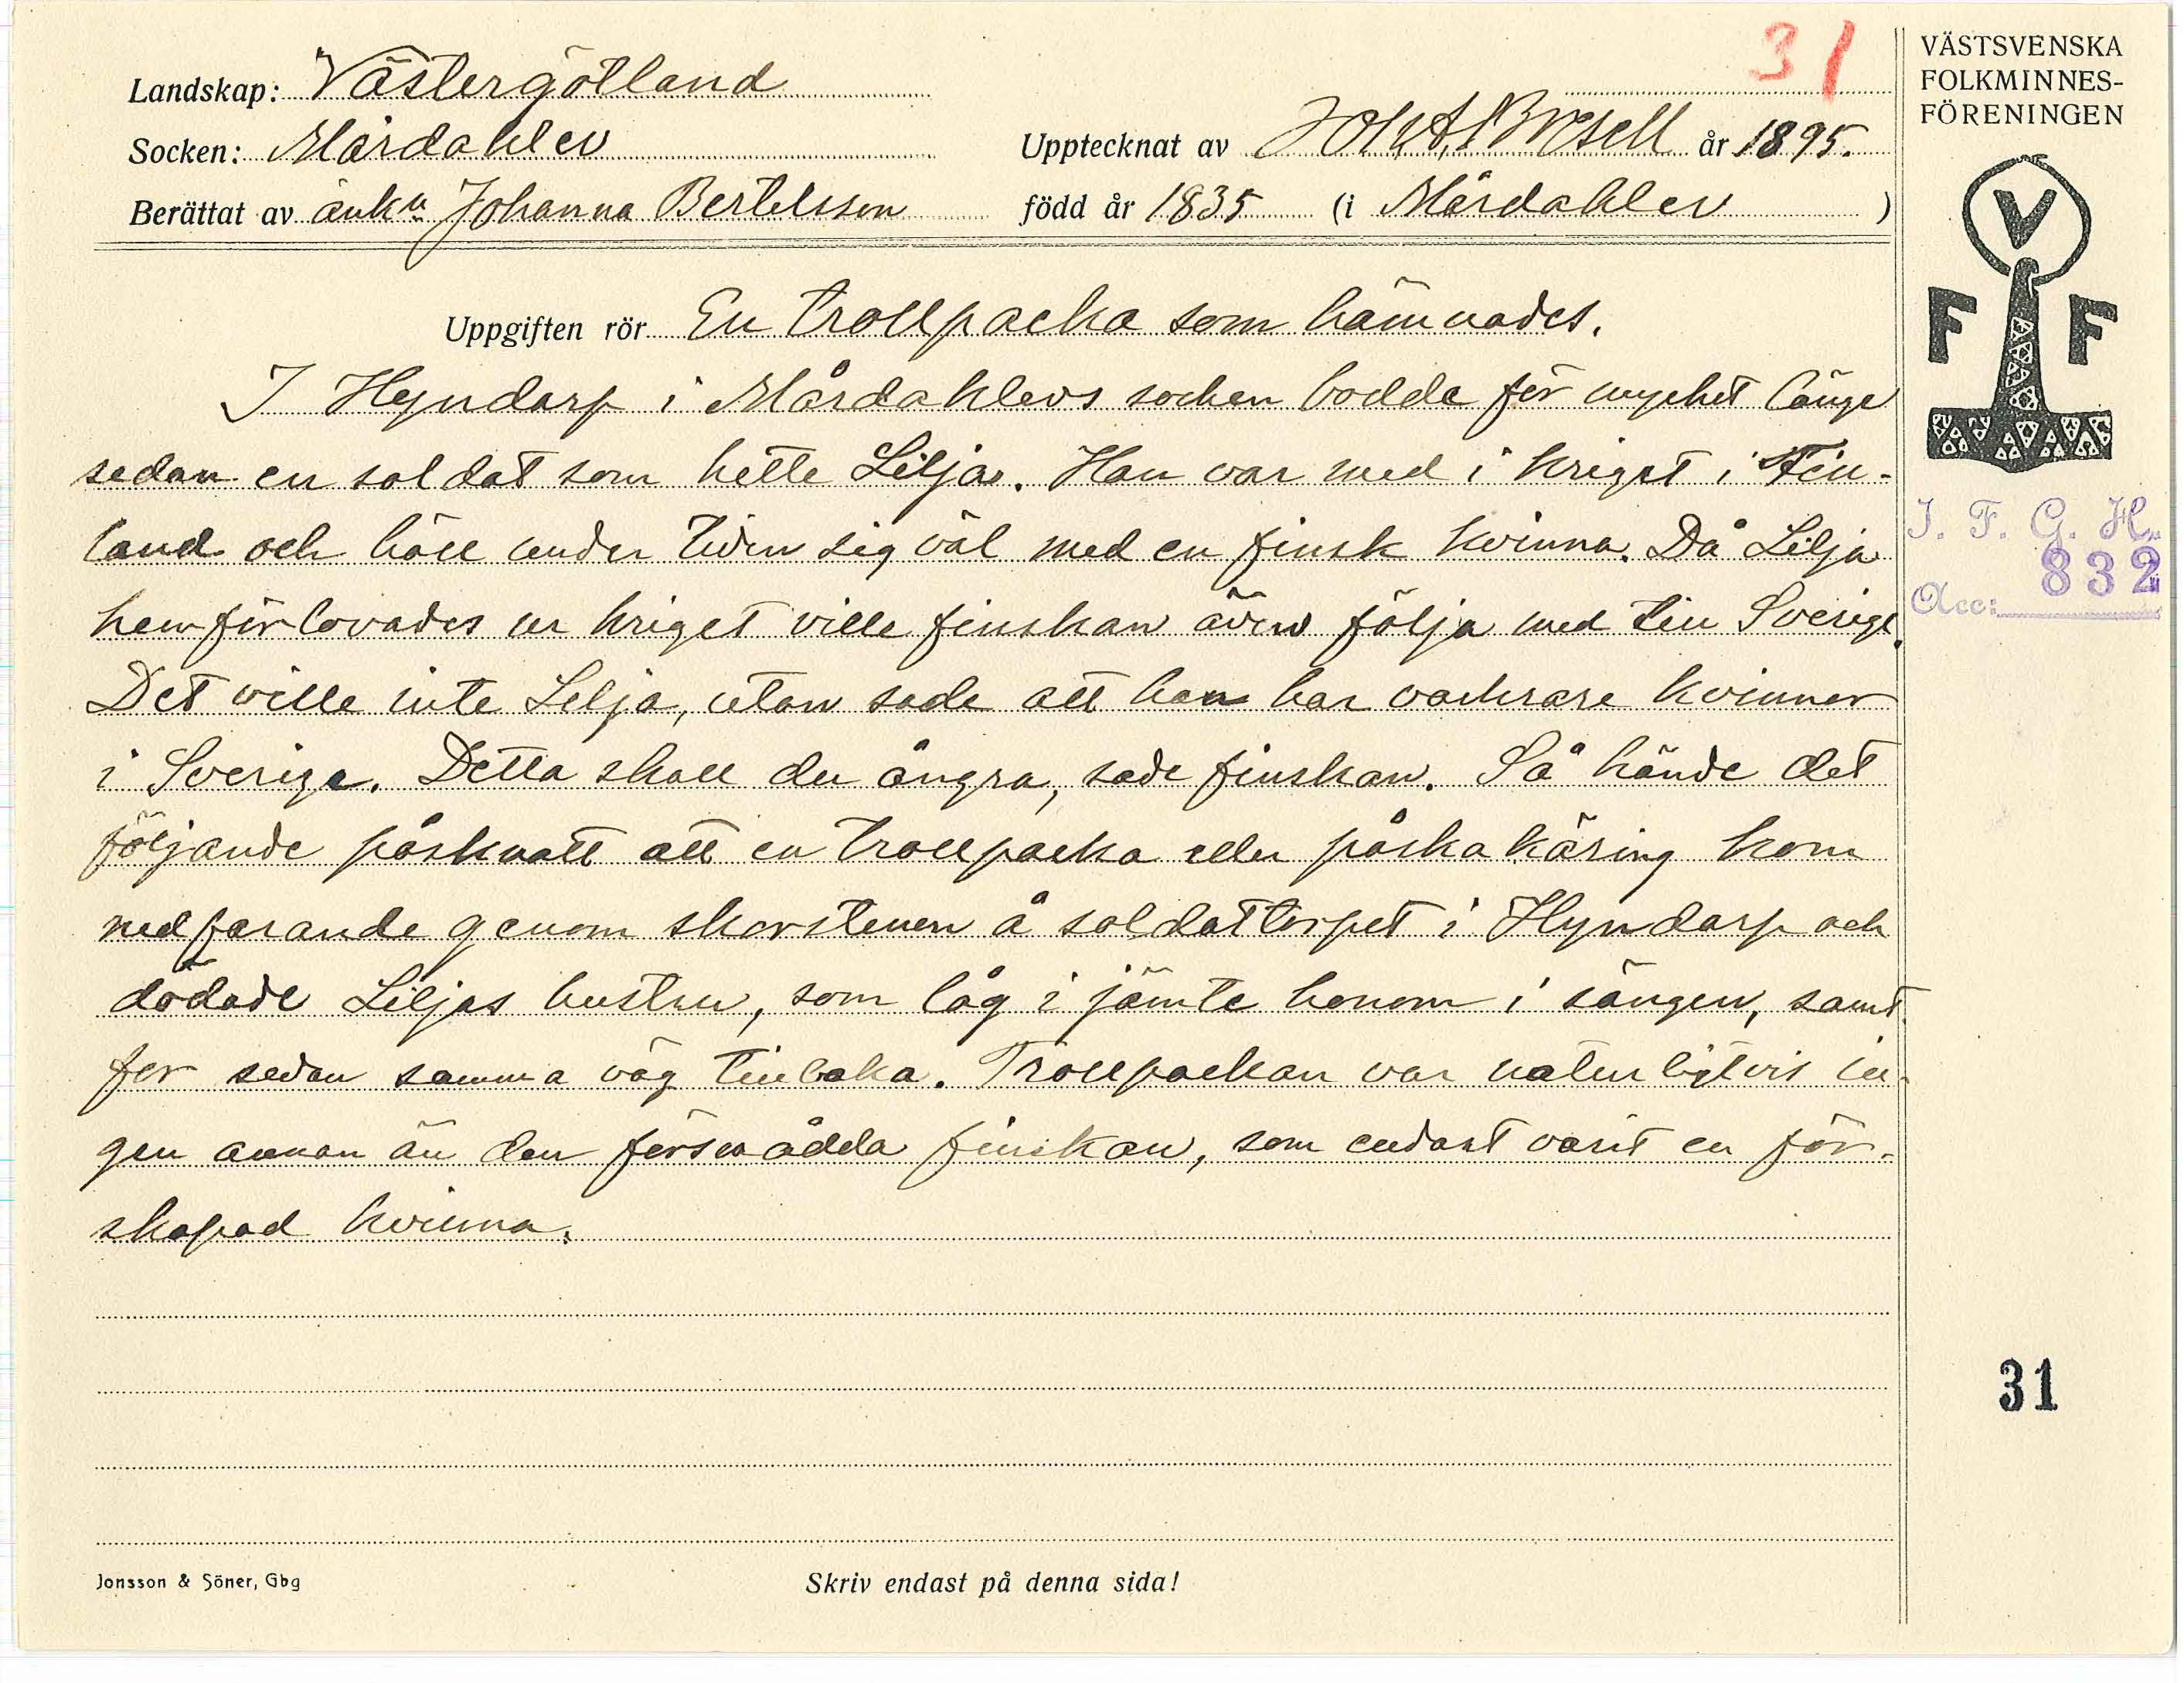 31
VÄSTSVENSKA
FOLKMINNES-
FÖRENINGEN
Landskap: Västergötland
Socken: Mårdaklev
Upptecknat av Joh. A. år 1895.
Berättat av änka Johanna Bertelsson född år 1835 (i Mårdaklev)
V
F F
Uppgiften rör En trollpacka som hämnades.
I Hyndarp i Mårdaklevs socken bodde för mycket länge
sedan en soldat som hette Lilja. Han var med i kriget i Fin-
land och höll under tiden sig väl med en finsk kvinna. Då Lilja
hemförlovades ur kriget ville finskan även följa med till Sverige.
Det ville inte Lilja, utan sade att han har vackrare kvinnor
i Sverige. Detta skall du ångra, sade finskan. Så hände det
följande påsknatt att en trollpacka eller påskakäring kom
nedfarande genom skorstenen å soldattorpet i Hyndarp och
dödade Liljas hustru, som låg i jämte honom i sängen, samt
for sedan samma väg tillbaka. Trollpackan var naturligtvis in-
gen annan än den försmådda finskan, som endast varit en för-
skapad kvinna.
I. F. G. H.
832
Acc:
31
Jonsson & Söner, Gbg
Skriv endast på denna sida!